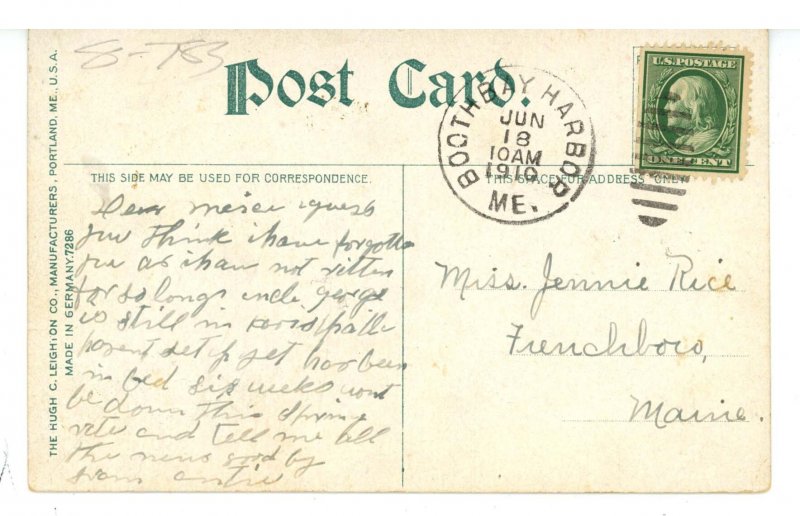 8-783
Post Card.
BOOTHBAY HARBOR
JUN
18
10AM
1910
ME.
U.S. POSTAGE
ONE CENT
THIS SIDE MAY BE USED FOR CORRESPONDENCE.
THIS SPACE FOR ADDRESS ONLY
THE HUGH C. LEIGHTON CO., MANUFACTURERS, PORTLAND, ME., U.S.A.
MADE IN GERMANY. 7286
Dear i guess
you think i have forgotten
you as i have not ritten
for so long uncle george
is still in
havent set up yet has been
in bed six weeks wont
be down this
rite and tell me all
the news good by
from antie
Miss. Jennie Rice
Frenchboro,
Maine.